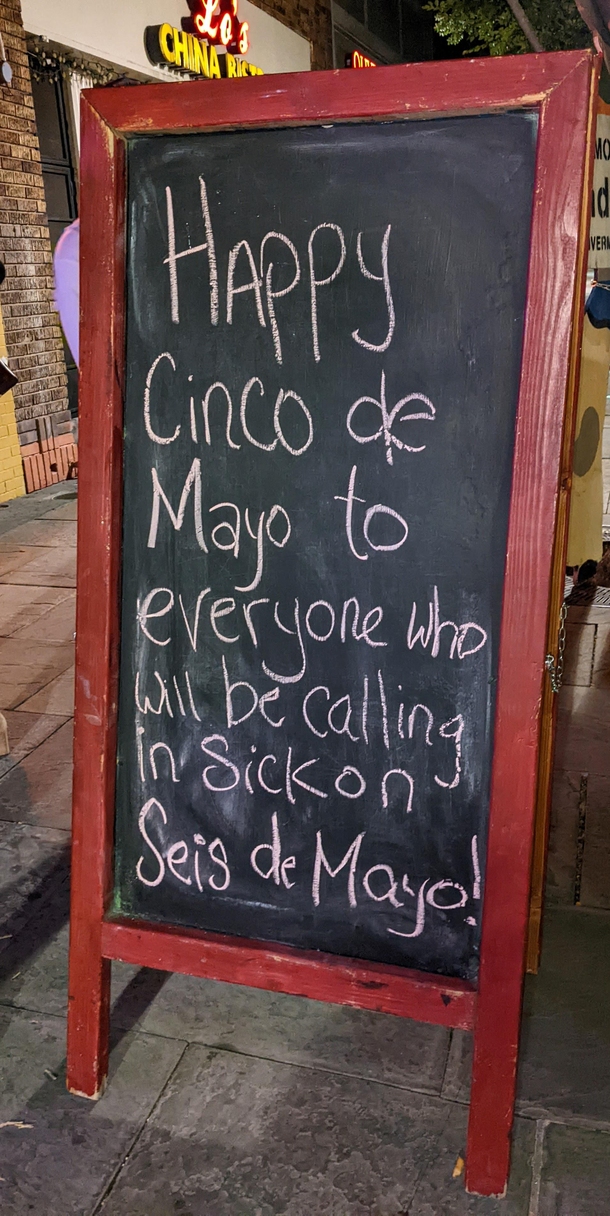 Lo's
CHINA BIST
Happy
Cinco de
Mayo to
everyone who
will be calling
in Sick on
Seis de Mayo!